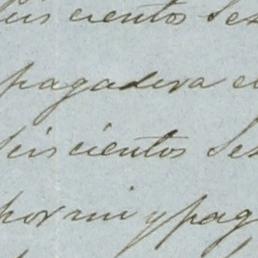 seis cientos Ses
pagadera e
Seis cientos Ses
por mi y pag